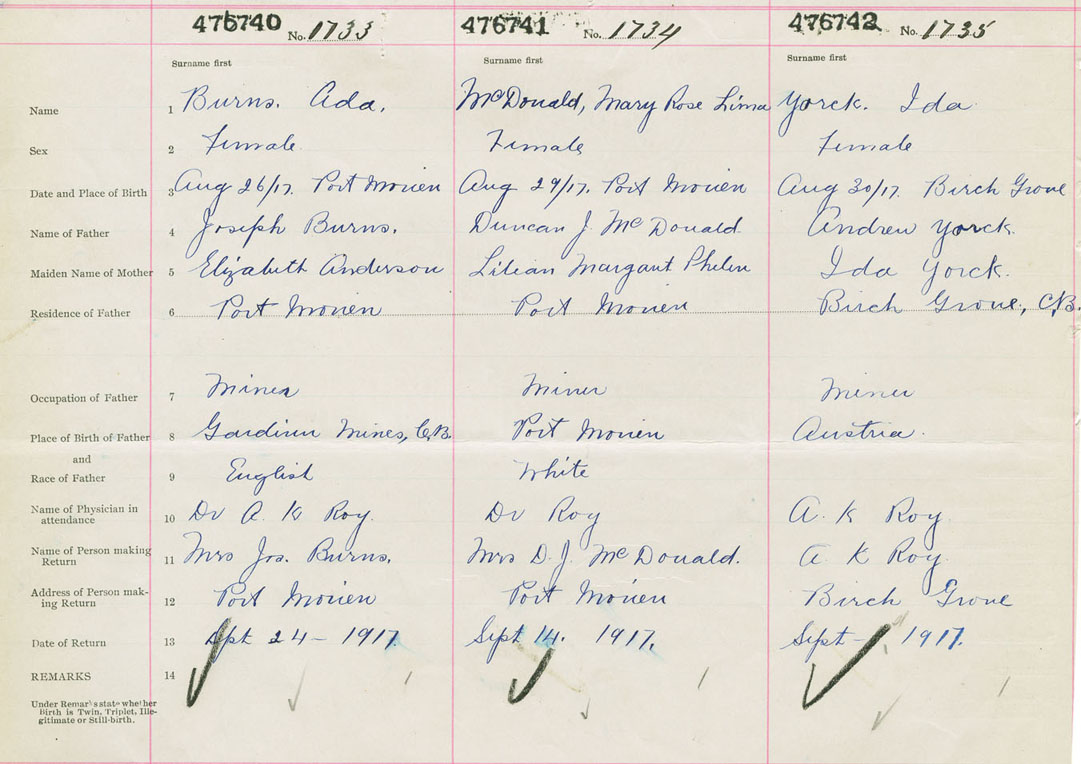 476740 No. 1733 476741 No. 1734 476742 No. 1735
Surname first Surname first Surname first
Name 1 Burns. Ada. McDonald, Mary Rose Lima Yorck. Ida
Sex 2 Female. Female Female
Date and Place of Birth 3 Aug 26/17. Port Morien Aug 29/17. Port Morien Aug 30/17. Birch Grove
Name of Father 4 Joseph Burns. Duncan J. McDonald Andrew Yorck.
Maiden Name of Mother 5 Elizabeth Anderson Lilian Margaret Phelen Ida Yorck.
Residence of Father 6 Port Morien Port Morien Birch Grove, C.B.
Occupation of Father 7 Miner Miner Miner
Place of Birth of Father 8 Gardiner Mines, C.B. Port Morien Austria.
and
Race of Father 9 English White
Name of Physician in
attendance 10 Dr A. K Roy. Dr Roy A. K Roy
Name of Person making
Return 11 Mrs Jos. Burns. Mrs D. J. McDonald. A. K Roy.
Address of Person mak-
ing Return 12 Port Morien Port Morien Birch Grove
Date of Return 13 Sept 24 - 1917. Sept 14. 1917. Sept - 1917.
REMARKS 14
Under Remarks state whether
Birth is Twin, Triplet, Ille-
gitimate or Still-birth.